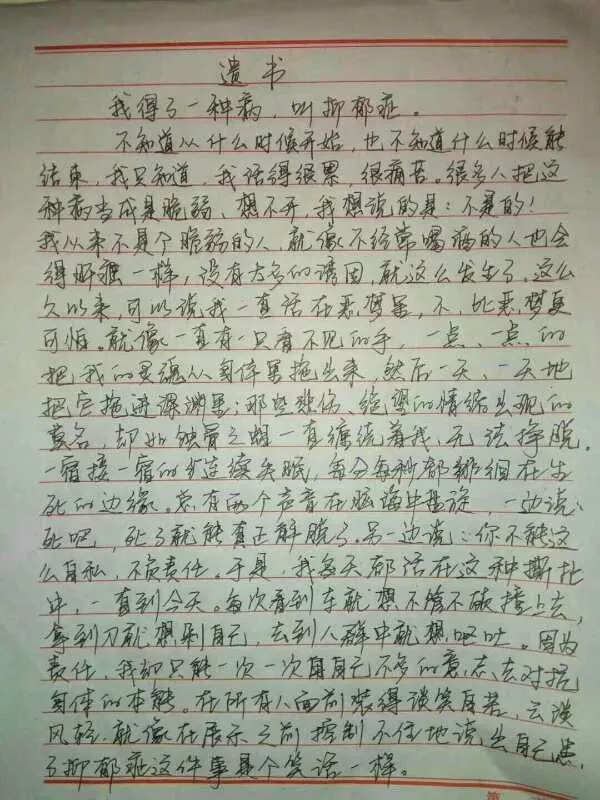 遗书
我得了一种病，叫抑郁症。
不知道从什么时候开始，也不知道什么时候能
结束，我只知道，我活得很累，很痛苦。很多人把这
种病当成是脆弱、想不开，我想说的是：不是的！
我从来不是个脆弱的人，就像不经常喝酒的人也会
得肝癌一样，没有太多的诱因，就这么发生了，这么
久以来，可以说我一直活在恶梦里，不，比恶梦更
可怕。就像一直有一只看不见的手，一点、一点的
把我的灵魂从身体里拖出来，然后一天、一天地
把它拖进深渊里；那些悲伤、绝望的情绪出现的
莫名，却如蚀骨之蛆一直缠绕着我，无法挣脱。
一宿接一宿的连续失眠，每分每秒都徘徊在生
死的边缘。总有两个声音在脑海中盘旋，一边说：
死吧，死了就能真正解脱了。另一边说：你不能这
么自私，不负责任。于是，我每天都活在这种撕扯
中，一直到今天。每次看到车就想不管不顾撞上去，
拿到刀就想剁自己，去到人群中就想呕吐。因为
责任，我却只能一次一次用自己不多的意志去对抗
身体的本能。在所有人面前装得谈笑自若、云淡
风轻，就像在展示之前控制不住地说出自己患
了抑郁症这件事是个笑话一样。